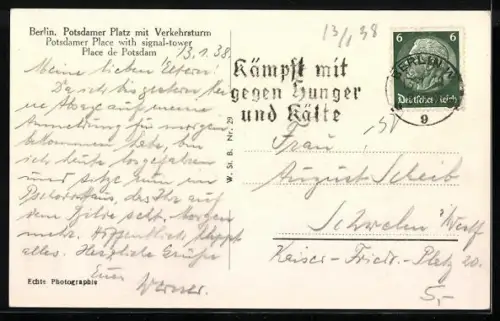 Berlin. Potsdamer Platz mit Verkehrsturm
Potsdamer Place with signal-tower
Place de Potsdam
13.1.38.
Meine lieben Eltern!
Da ich bis gestern keine
Absage auf meine
Anmeldung für morgen
bekommen habe, bin
ich heute losgefahren
und sitze nun im
Pschorrhaus, das Ihr auf
dem Bilde seht. Morgen
mehr. Hoffentlich klappt
alles. Herzliche Grüße
Euer Werner.
Echte Photographie
W. St. B. Nr. 29
13/1 38
Kämpft mit
gegen Hunger
und Kälte
BERLIN
9
6 6
Deutsches Reich
Frau
August Scheib
Schwelm/Westf
Kaiser-Friedr.-Platz 20.
5,-